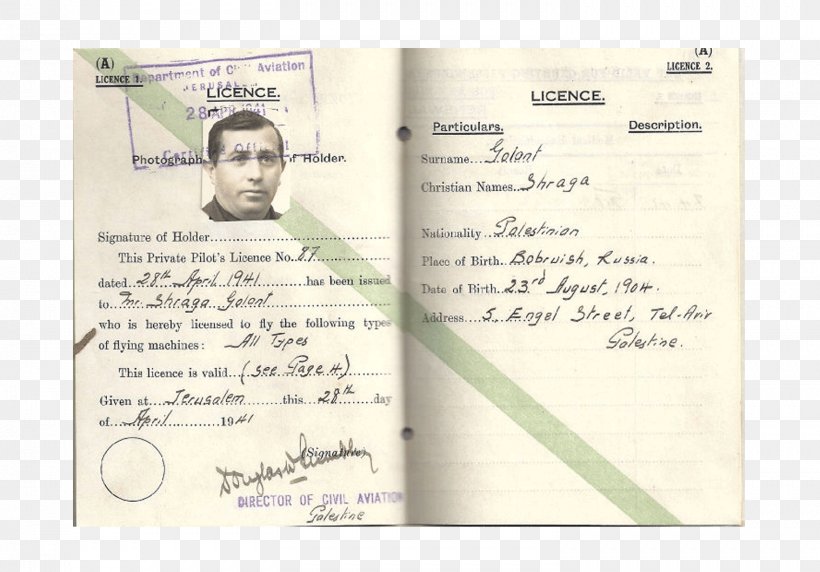 (A)
LICENCE 1.
Department of Civil Aviation
JERUSALEM
28 APR 1941
LICENCE.
Photograph of Holder.
Signature of Holder
This Private Pilot's Licence No. 87
dated 28th April 1941 has been issued
to Mr Shraga Golant
who is hereby licensed to fly the following types
of flying machines: All Types
This licence is valid (see Page 4)
Given at Jerusalem this 28th day
of April 1941
(Signature)
DIRECTOR OF CIVIL AVIATION
Palestine
(A)
LICENCE 2.
LICENCE.
Particulars. Description.
Surname Golant
Christian Names Shraga
Nationality Palestinian
Place of Birth Bobruish, Russia.
Date of Birth 23rd August, 1904.
Address 5, Engel Street, Tel-Aviv
Palestine.